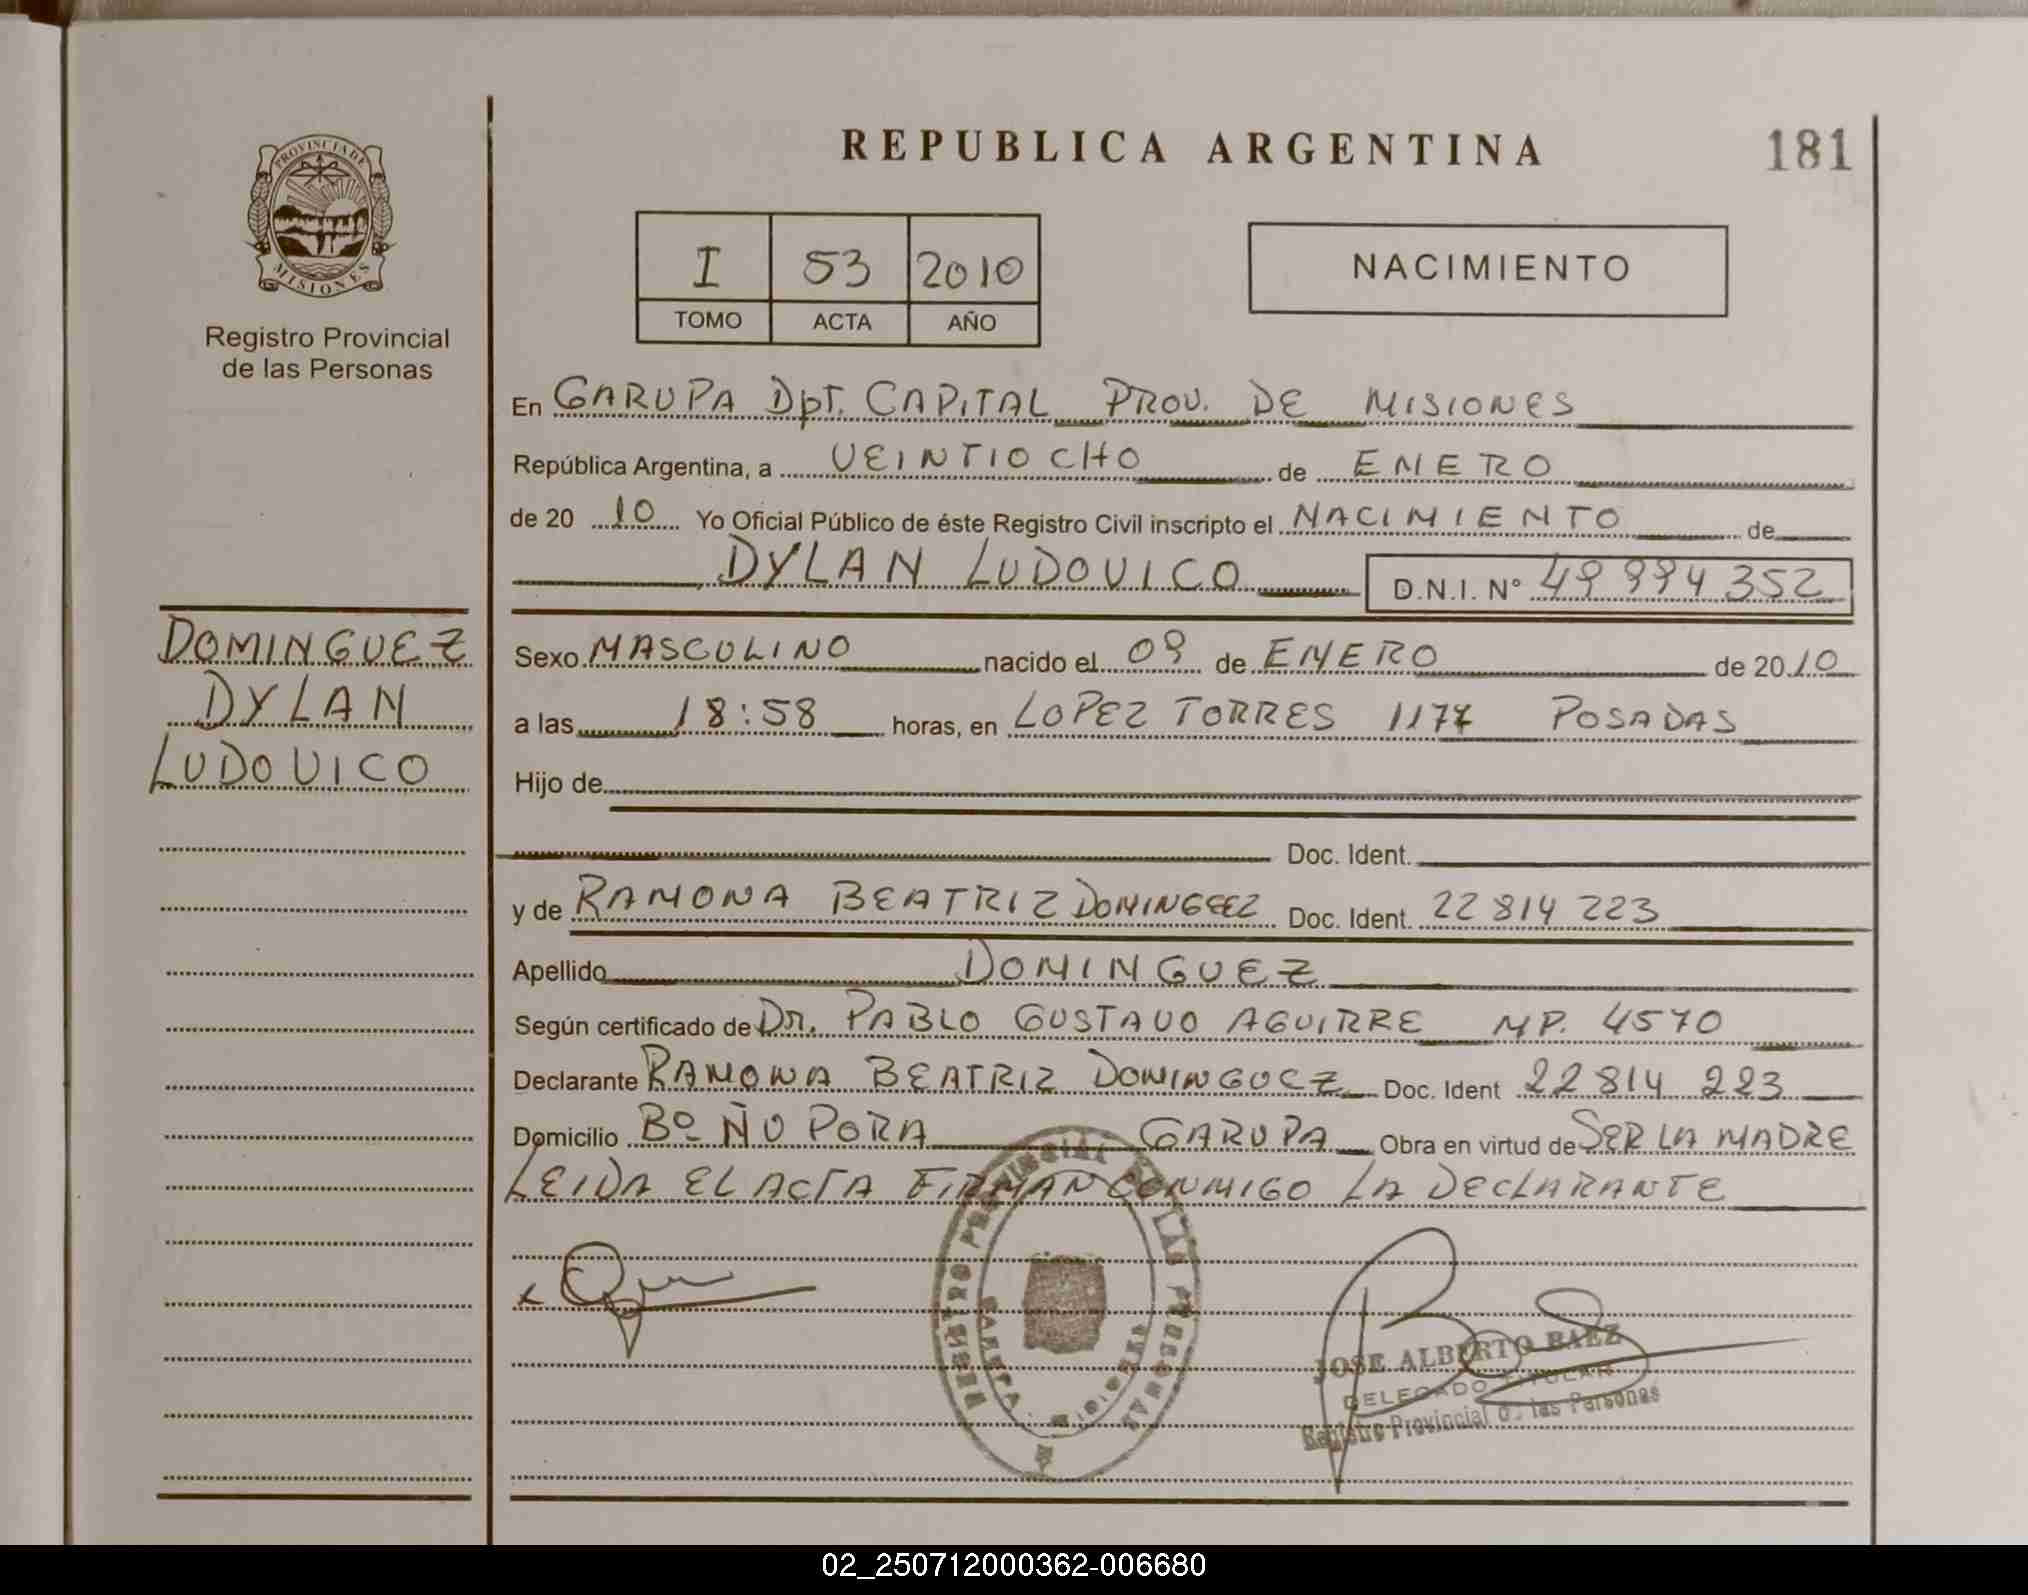 PROVINCIA DE
MISIONES
Registro Provincial
de las Personas
REPUBLICA ARGENTINA 181
I 53 2010
TOMO ACTA AÑO
NACIMIENTO
En GARUPA DpT. CAPITAL PROV. DE MISIONES
República Argentina, a VEINTIOCHO de ENERO
de 20 10 Yo Oficial Público de éste Registro Civil inscripto el NACIMIENTO de
DYLAN LUDOVICO D.N.I. Nº 49 994 352
DOMINGUEZ
DYLAN
LUDOVICO
Sexo MASCULINO nacido el 09 de ENERO de 20 10
a las 18:58 horas, en LOPEZ TORRES 1177 POSADAS
Hijo de
Doc. Ident.
y de RAMONA BEATRIZ DOMINGUEZ Doc. Ident. 22 814 223
Apellido DOMINGUEZ
Según certificado de Dr. PABLO GUSTAVO AGUIRRE MP. 4570
Declarante RAMONA BEATRIZ DOMINGUEZ Doc. Ident 22 814 223
Domicilio Bº ÑU PORA GARUPA Obra en virtud de SER LA MADRE
LEIDA EL ACTA FIRMAN CONMIGO LA DECLARANTE
REGISTRO PROVINCIAL DE LAS PERSONAS
JOSE ALBERTO BAEZ
DELEGADO TITULAR
Registro Provincial de las Personas
02_250712000362-006680